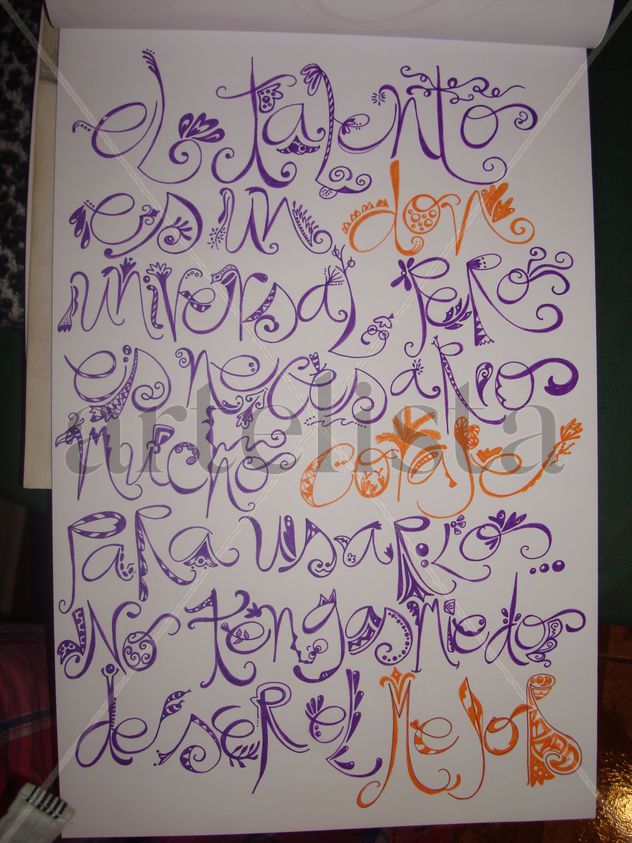 el talento
es un don
universal, pero
es necesario
mucho coraje
para usarlo...
No tengas miedo
de ser el Mejor
artelista